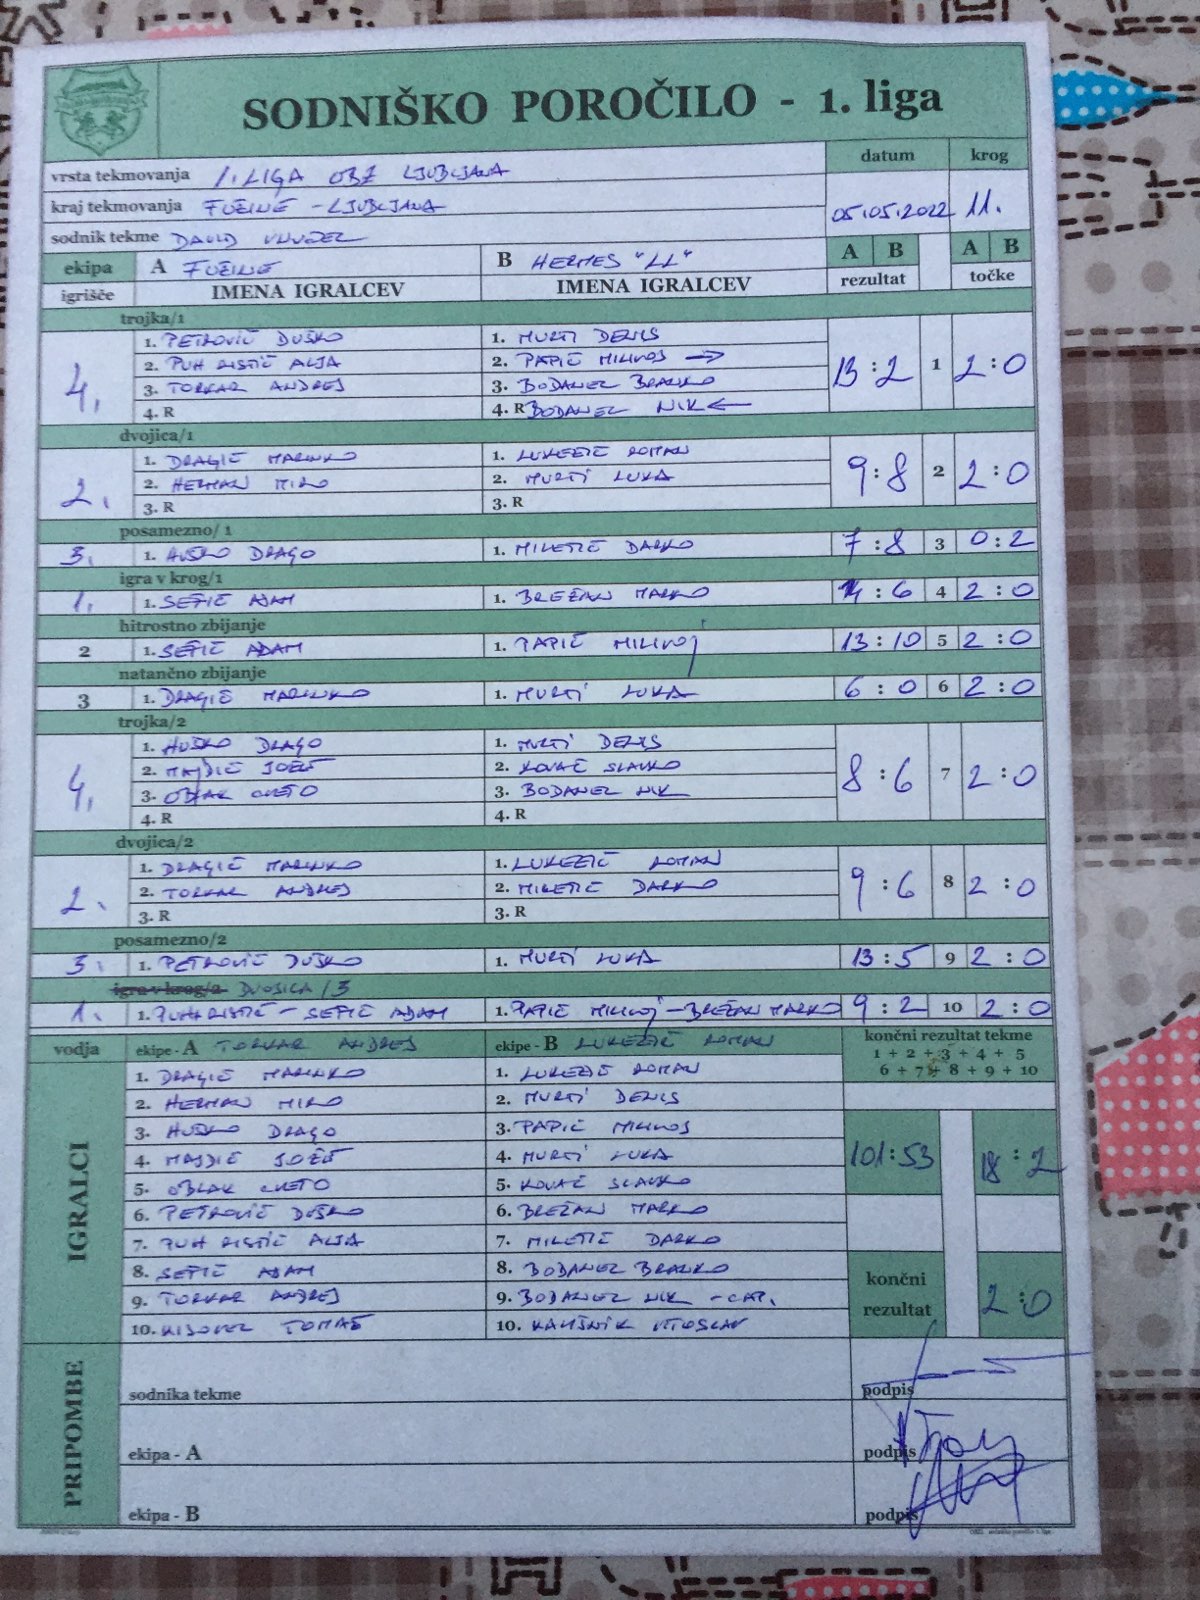 SODNIŠKO POROČILO - 1. liga
vrsta tekmovanja 1. LIGA OBZ LJUBLJANA
datum krog
kraj tekmovanja FUŽINE - LJUBLJANA
05.05.2022 11.
sodnik tekme DAVID
ekipa A FUŽINE B HERMES "LL" A B A B
igrišče IMENA IGRALCEV IMENA IGRALCEV rezultat točke
trojka/1
4. 13 : 2 1 2 : 0
1. PETROVIČ DUŠKO 1. MURTI DENIS
2. PUH RISTIČ ALJA 2. PAPIČ MILIVOJ →
3. TORKAR ANDREJ 3. BODANEC BRANKO
4. R 4. R BODANEC NIK ←
dvojica/1
2. 9 : 8 2 2 : 0
1. DRAGIČ MARINKO 1. LUKEŽIČ ROMAN
2. HERMAN MIRO 2. MURTI LUKA
3. R 3. R
posamezno/ 1
3. 1. HUSKO DRAGO 1. MILETIČ DARKO 7 : 8 3 0 : 2
igra v krog/1
1. 1. SEFIČ ADAM 1. BREŽAN MARKO : 6 4 2 : 0
hitrostno zbijanje
2 1. SEFIČ ADAM 1. PAPIČ MILIVOJ 13 : 10 5 2 : 0
natančno zbijanje
3 1. DRAGIČ MARINKO 1. MURTI LUKA 6 : 0 6 2 : 0
trojka/2
4. 8 : 6 7 2 : 0
1. HUSKO DRAGO 1. MURTI DENIS
2. MAJDIČ JOŽE 2. KOVAČ SLAVKO
3. OBLAK CVETO 3. BODANEC NIK
4. R 4. R
dvojica/2
2. 9 : 6 8 2 : 0
1. DRAGIČ MARINKO 1. LUKEŽIČ ROMAN
2. TORKAR ANDREJ 2. MILETIČ DARKO
3. R 3. R
posamezno/2
3. 1. PETROVIČ DUŠKO 1. MURTI LUKA 13 : 5 9 2 : 0
igra v krog/2 DVOJICA/3
1. 1. PUH RISTIČ - SEFIČ ADAM 1. PAPIČ MILIVOJ - BREŽAN MARKO 9 : 2 10 2 : 0
vodja ekipe - A TORKAR ANDREJ ekipe - B LUKEŽIČ ROMAN končni rezultat tekme
1 + 2 + 3 + 4 + 5
6 + 7 + 8 + 9 + 10
IGRALCI
1. DRAGIČ MARINKO 1. LUKEŽIČ ROMAN
2. HERMAN MIRO 2. MURTI DENIS
3. HUSKO DRAGO 3. PAPIČ MILIVOJ
4. MAJDIČ JOŽE 4. MURTI LUKA 101 : 53 18 : 2
5. OBLAK CVETO 5. KOVAČ SLAVKO
6. PETROVIČ DUŠKO 6. BREŽAN MARKO
7. PUH RISTIČ ALJA 7. MILETIČ DARKO
8. SEFIČ ADAM 8. BODANEC BRANKO
9. TORKAR ANDREJ 9. BODANEC NIK - CAP.
10. KISOVEC TOMAŽ 10. KAMŠNIK VITOSLAV
končni rezultat 2 : 0
PRIPOMBE
sodnika tekme podpis
ekipa - A podpis
ekipa - B podpis